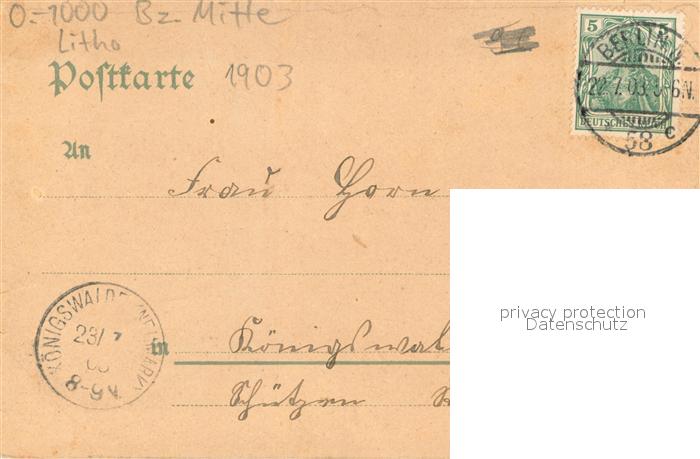 O-1000 Bz. Mitte
Litho
Postkarte 1903
5 5
DEUTSCHES REICH
BERLIN
22.7.03. 5-6N.
58 c
An
Frau Horn
privacy protection
Datenschutz
KÖNIGSWALDE (NEUMARK)
23/7
03
8-9V
in Königswal
Schützen